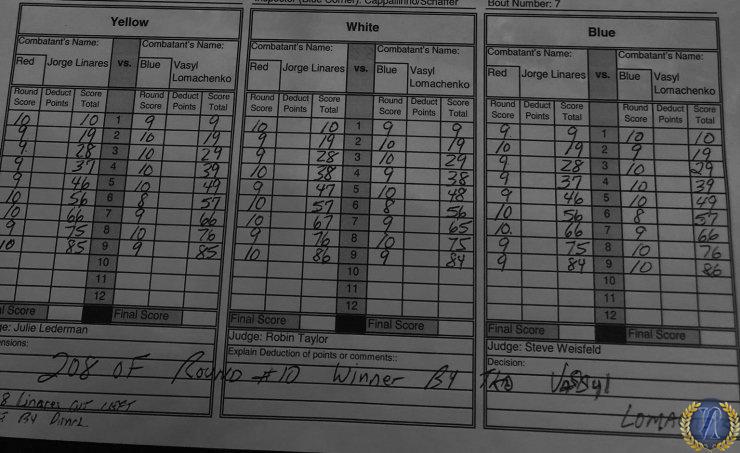 Inspector (Blue Corner): Cappallino/Schaffer Bout Number: 7
Yellow White Blue
Combatant's Name: Combatant's Name: Combatant's Name: Combatant's Name: Combatant's Name: Combatant's Name:
Red Jorge Linares vs. Blue Vasyl Lomachenko Red Jorge Linares vs. Blue Vasyl Lomachenko Red Jorge Linares vs. Blue Vasyl Lomachenko
Round Score Deduct Points Score Total Round Score Deduct Points Score Total Round Score Deduct Points Score Total Round Score Deduct Points Score Total Round Score Deduct Points Score Total Round Score Deduct Points Score Total
10 10 1 9 9 10 10 1 9 9 9 9 1 10 10
9 19 2 10 19 9 19 2 10 19 10 19 2 9 19
9 28 3 10 29 9 28 3 10 29 9 28 3 10 29
9 37 4 10 39 10 38 4 9 38 9 37 4 10 39
9 46 5 10 49 9 47 5 10 48 9 46 5 10 49
10 56 6 8 57 10 57 6 8 56 10 56 6 8 57
10 66 7 9 66 10 67 7 9 65 10 66 7 9 66
9 75 8 10 76 9 76 8 10 75 9 75 8 10 76
10 85 9 9 85 10 86 9 9 84 9 84 9 10 86
10 10 10
11 11 11
12 12 12
Final Score Final Score Final Score Final Score Final Score
Julie Lederman Judge: Robin Taylor Judge: Steve Weisfeld
Explain Deduction of points or comments:: Decision:
208 OF ROUND #10 WINNER BY TKO VASSYL
LOMA
8 Linares CUT LEFT
BY